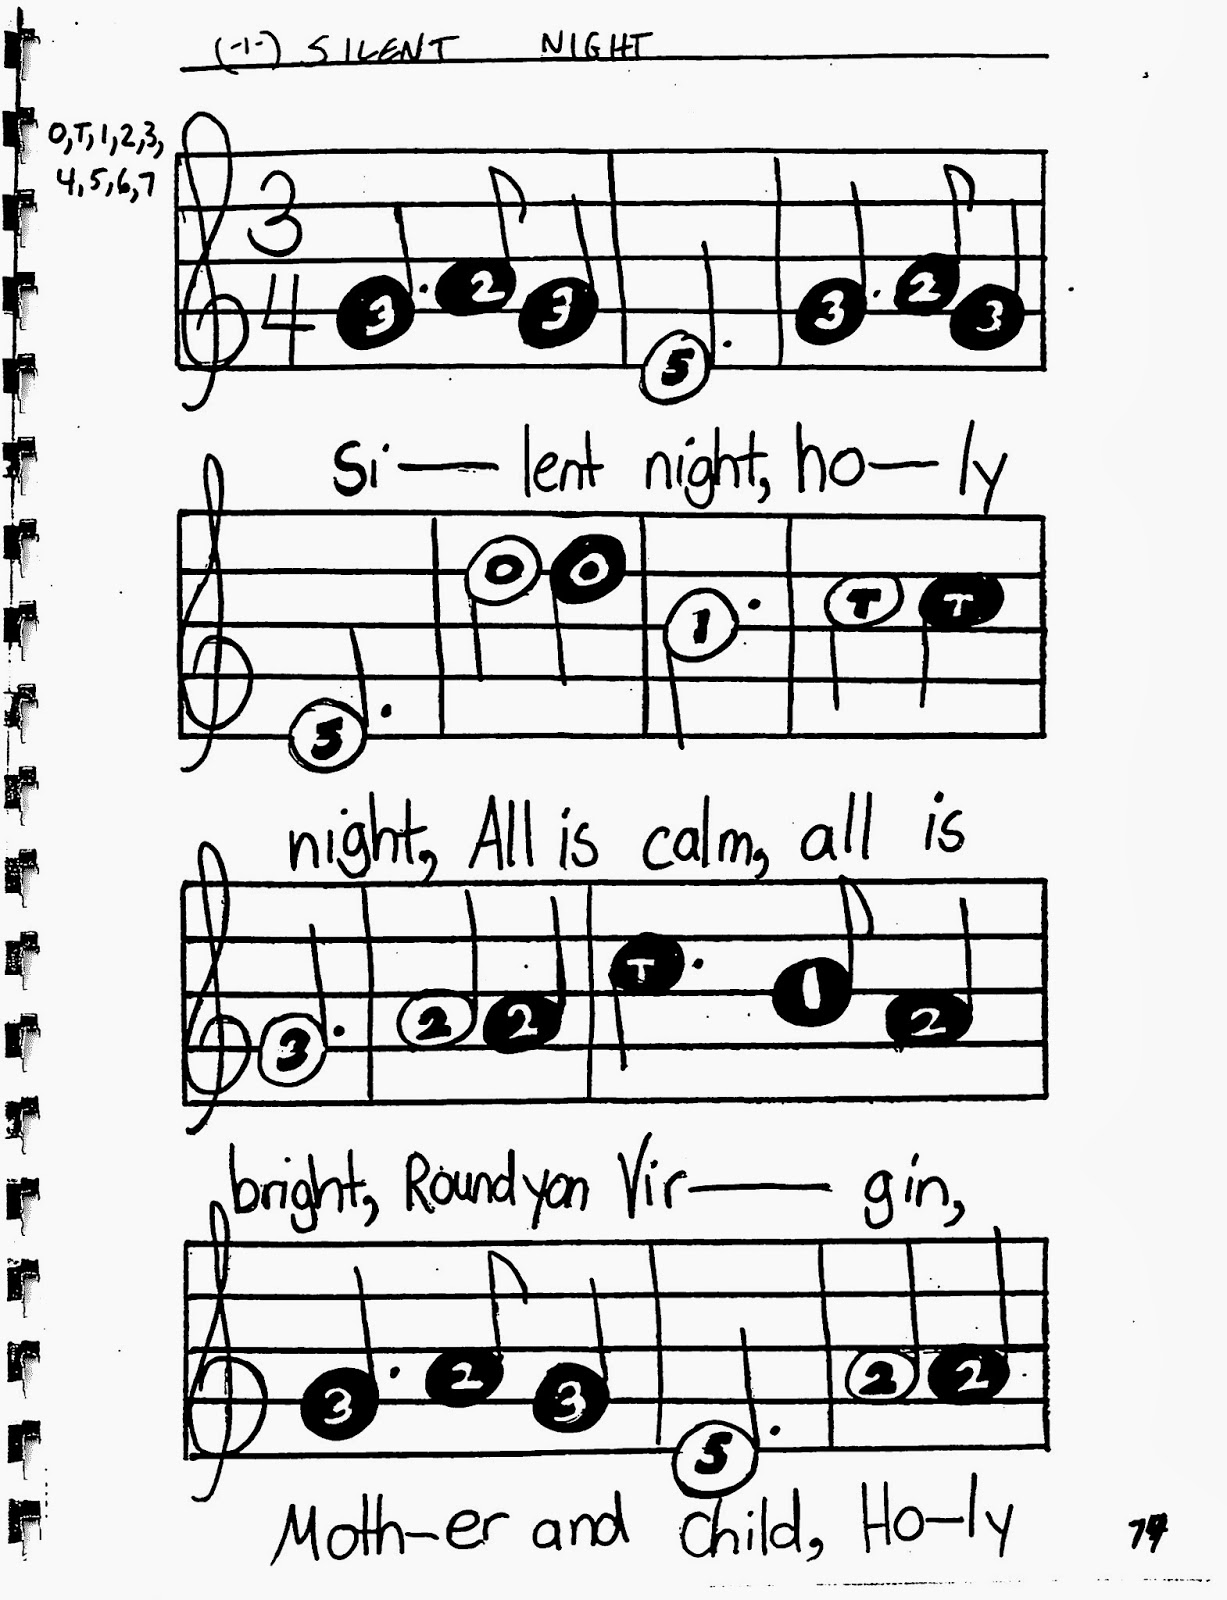 (-1-) SILENT NIGHT
0,T,1,2,3,
4,5,6,7
3
4
3 2 3 5 3 2 3
Si— lent night, ho— ly
5 0 0 1 T T
night, All is calm, all is
3 2 2 T 1 2
bright, Round yon Vir— gin,
3 2 3 5 2 2
Moth-er and child, Ho-ly